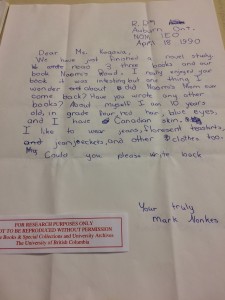 R.R.#1
Auburn Ont.
N0M 1E0
April 18 1990
Dear Ms. Kogawa,
We have just finished a novel study.
We read 3 books and our
book Naomi's Road, I really enjoyed your
book it was intresting but one thing I
wonder about did Naomi's Mom ever
come back? Have you wrote any other
books? About myself I am 10 years
old, in grade four, blue eyes,
and I have Canadian skin.
I like to wear jeans, floresent teashirts,
jeany jackets, and other clothes too.
Could you please write back
Your truly
Mark Nonkes
FOR RESEARCH PURPOSES ONLY
NOT TO BE REPRODUCED WITHOUT PERMISSION
Books & Special Collections and University Archives
The University of British Columbia